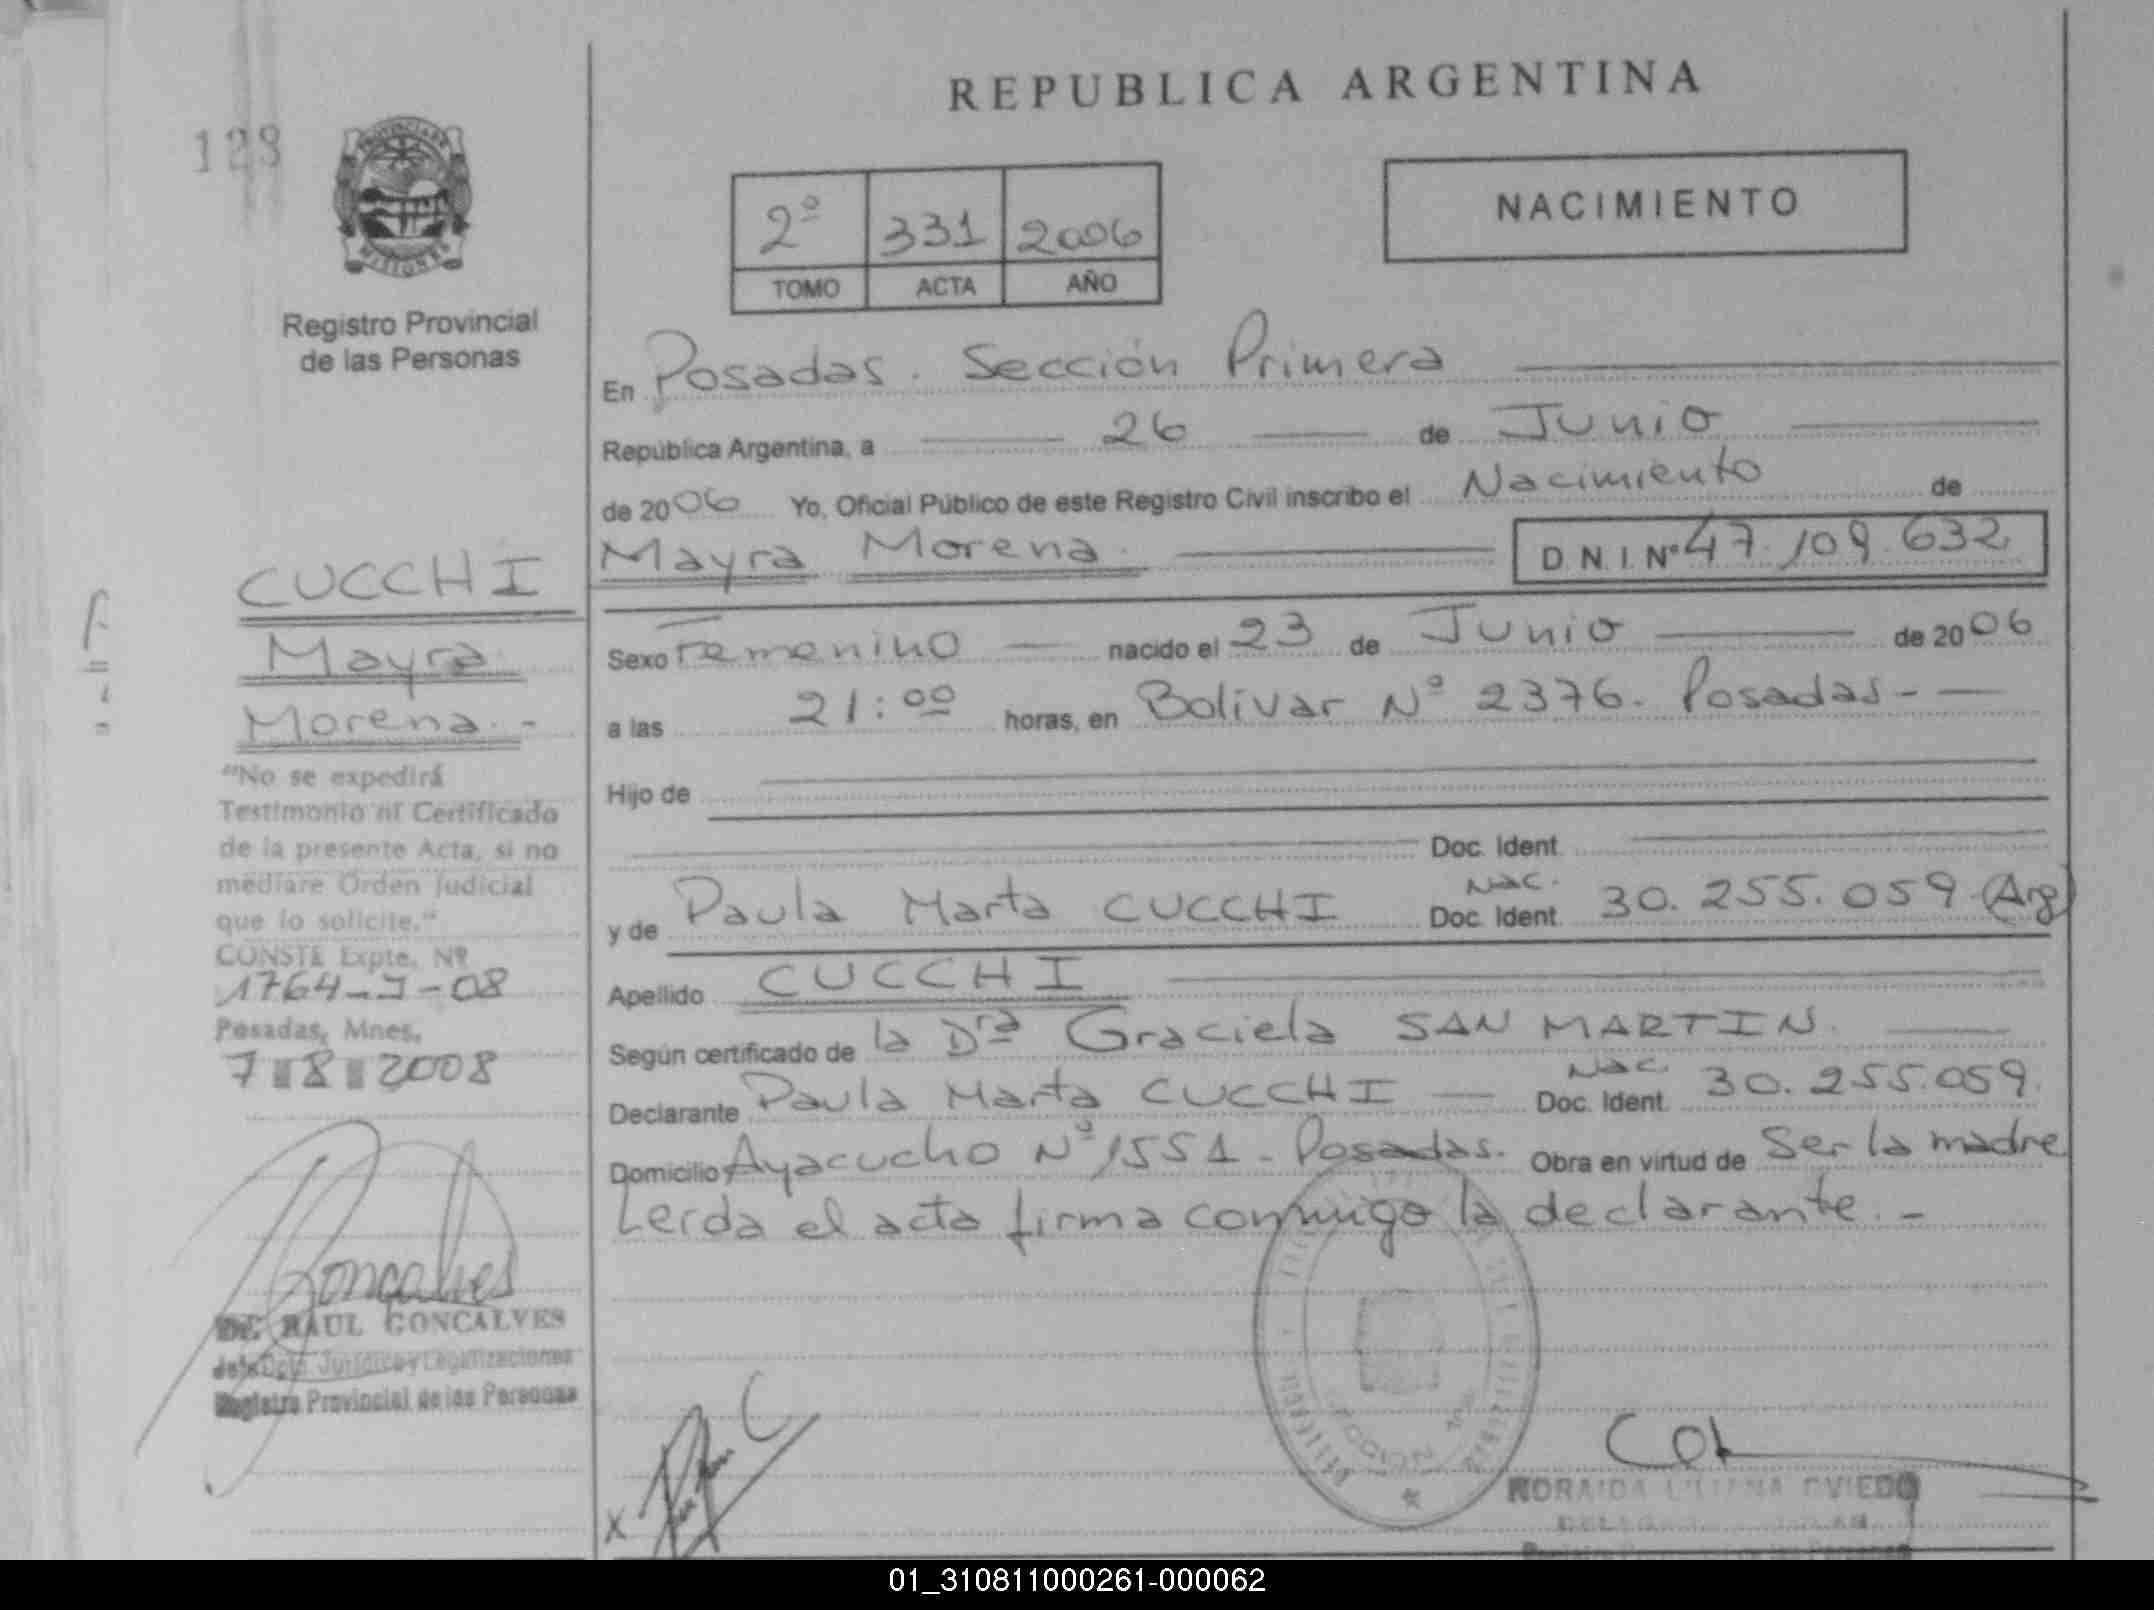 REPUBLICA ARGENTINA
128
NACIMIENTO
2º 331 2006
TOMO ACTA AÑO
Registro Provincial
de las Personas
En Posadas. Sección Primera
República Argentina, a 26 de Junio
de 2006 Yo, Oficial Público de este Registro Civil inscribo el Nacimiento de
Mayra Morena. D.N.I. Nº 47.109.632
Sexo Femenino nacido el 23 de Junio de 2006
a las 21:00 horas, en Bolivar Nº 2376. Posadas -
Hijo de
Doc. Ident.
y de Paula Marta CUCCHI Nac. Doc. Ident. 30.255.059 (Arg)
Apellido CUCCHI
Según certificado de la Dra Graciela SAN MARTIN.
Declarante Paula Marta CUCCHI Nac. Doc. Ident. 30.255.059.
Domicilio Ayacucho Nº 1551 - Posadas. Obra en virtud de Ser la madre
Leida el acta firma conmigo la declarante. -
CUCCHI
Mayra
Morena. -
"No se expedirá
Testimonio ni Certificado
de la presente Acta, si no
mediare Orden Judicial
que lo solicite."
CONSTE Expte. Nº
1764-J-08
Posadas, Mnes.
7 8 2008
Goncalves
Dr. RAUL GONCALVES
Jefe Dpto. Jurídico y Legalizaciones
Registro Provincial de las Personas
X
NORAIDA LILIANA OVIEDO
01_310811000261-000062